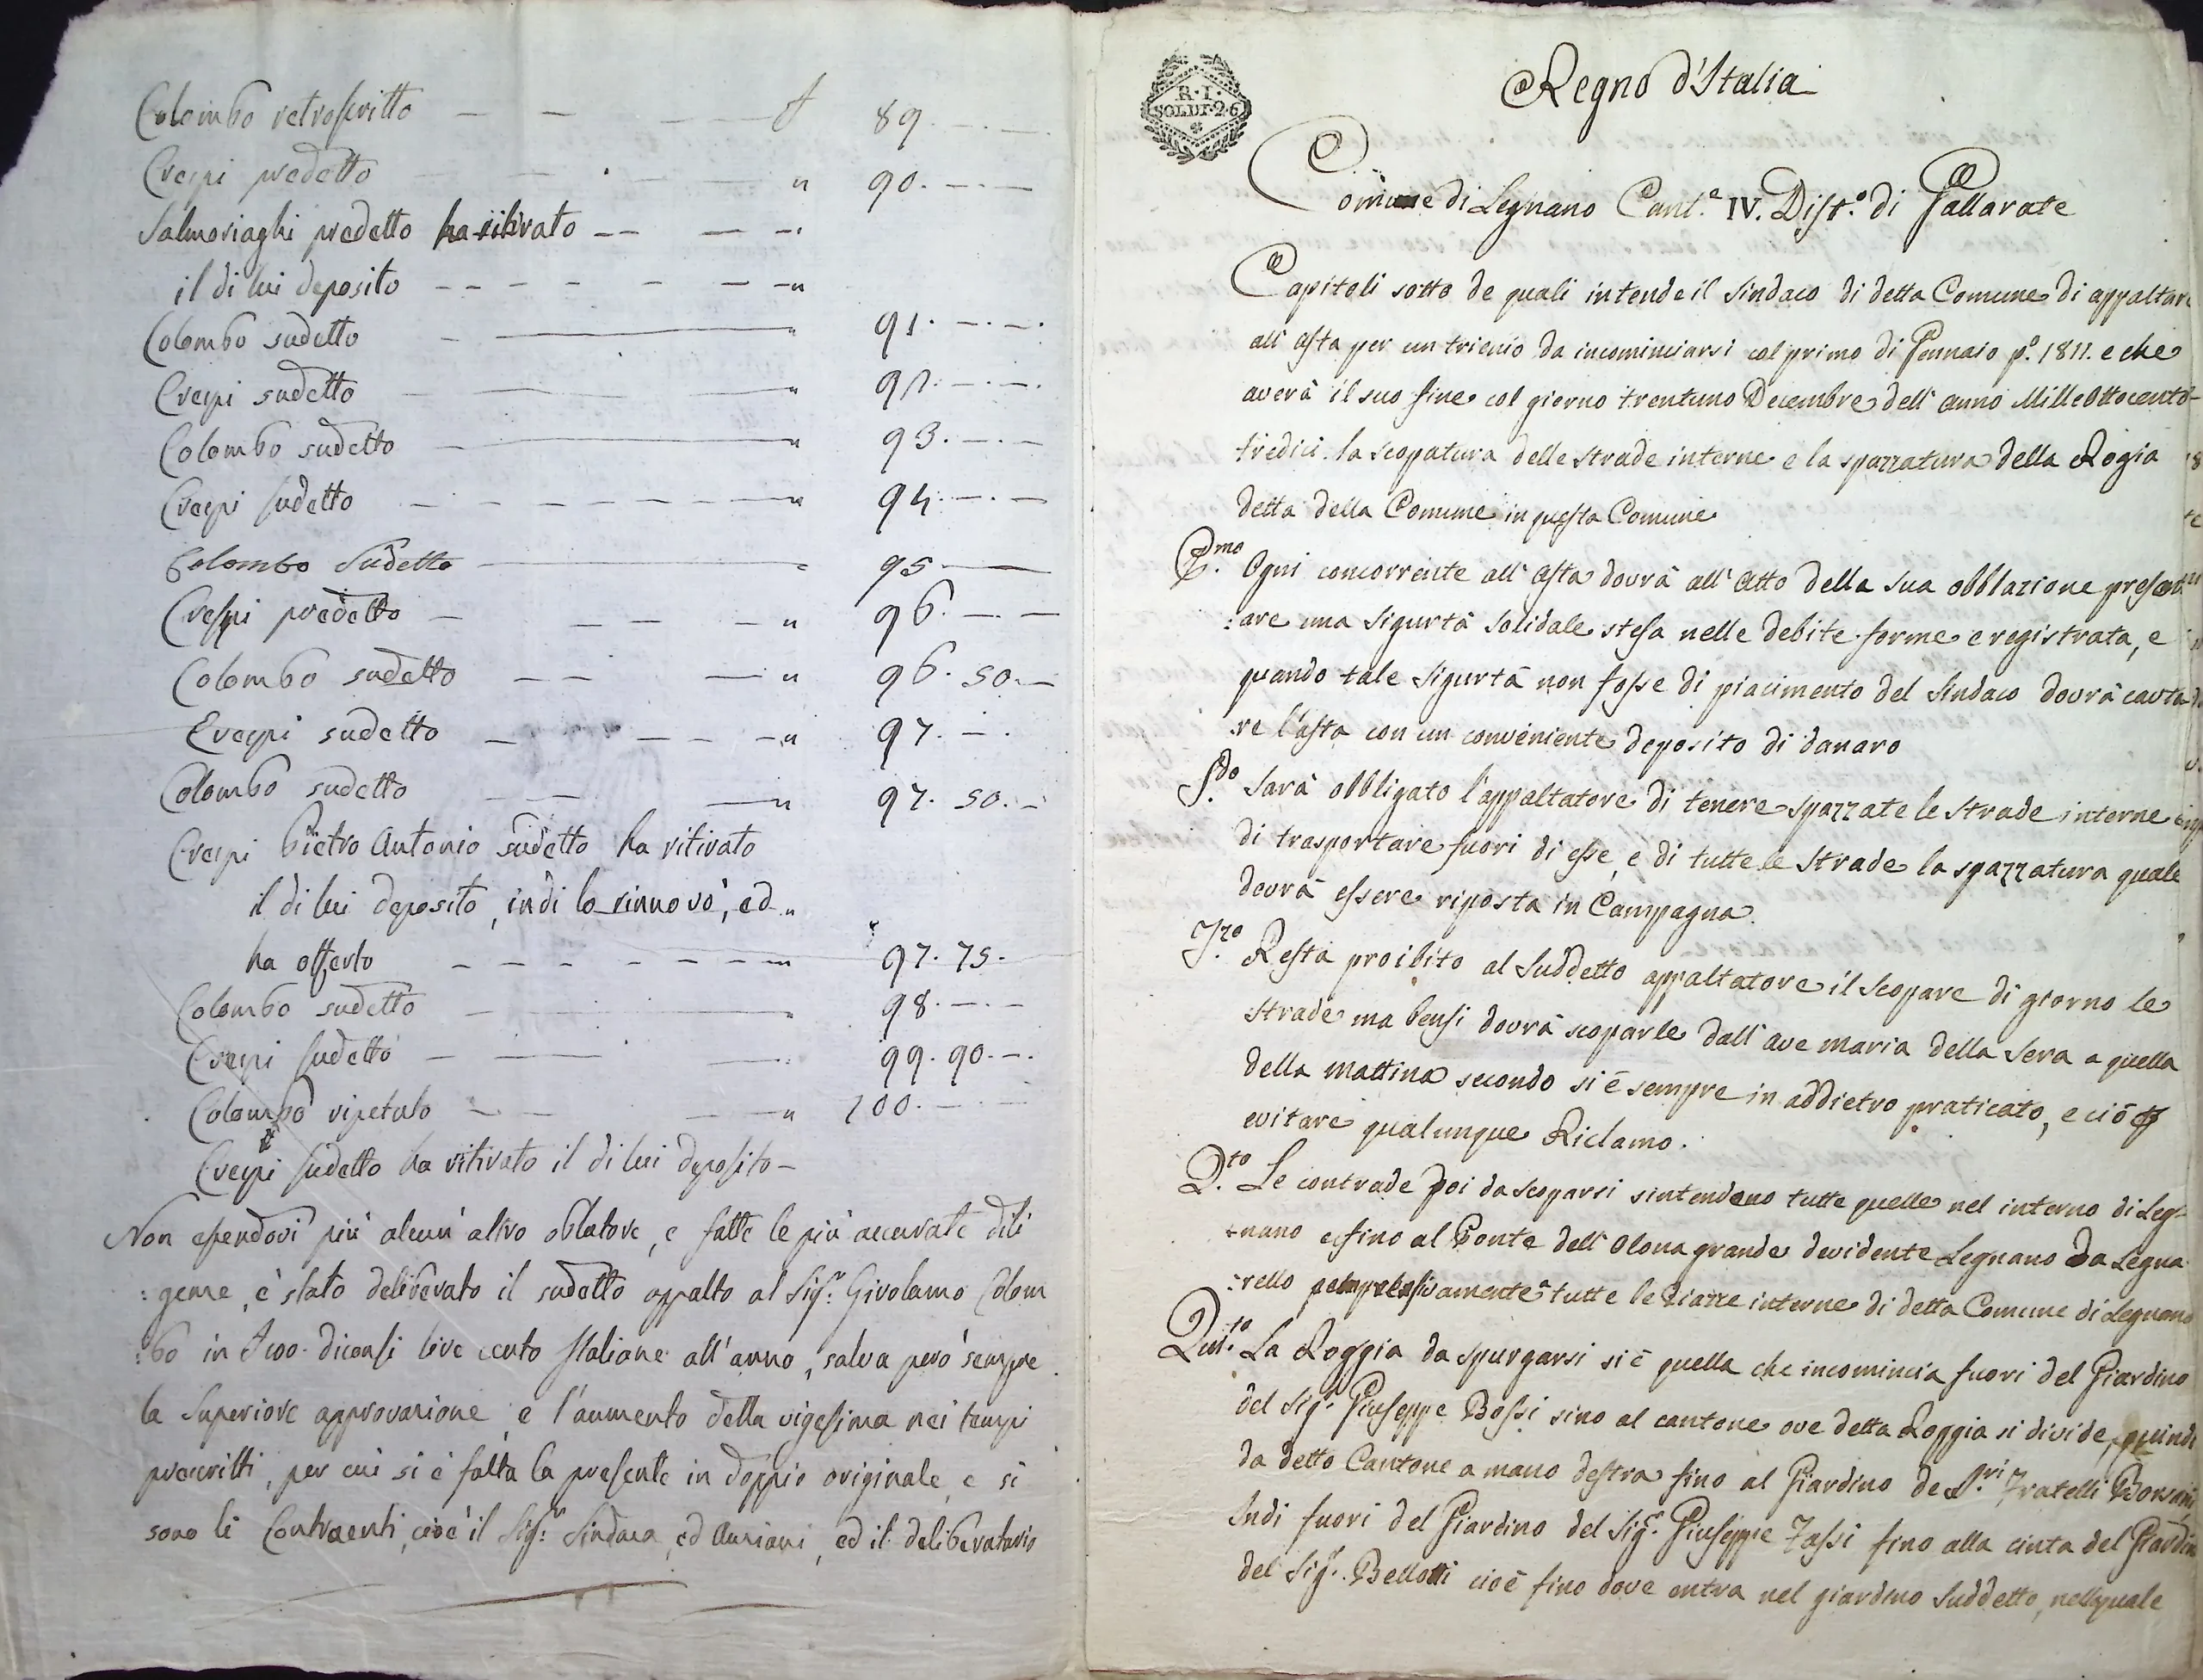 Colombo retroscritto — — — £ 89. — . —
Crespi predetto — — . — " 90. — . —
Salmoriaghi predetto ha ritirato — — — — .
il di lui deposito — — — — — — — "
Colombo sudetto — — " 91. — . — .
Crespi sudetto — — " 92. — . — .
Colombo sudetto — — " 93. — . —
Crespi sudetto — — — — — — — " 94. — . —
Colombo Sudetto — " 95. —
Crespi predetto — — — — " 96. — . —
Colombo sudetto — — — " 96. 50. —
Crespi sudetto — — — — " 97. — .
Colombo sudetto — — — " 97. 50. —
Crespi Pietro Antonio sudetto ha ritirato
il di lui deposito, indi lo rinnovò, ed "
ha offerto — — — — — — — " 97. 75.
Colombo sudetto — — " 98. — . —
Crespi sudetto — — — 99. 90. — .
Colombo ripetuto — — — — " 100. — . —
Crespi sudetto ha ritirato il di lui deposito —
Non essendovi più alcun' altro oblatore, e fatte le più accurate dili
: genze, è stato deliberato il sudetto appalto al Sig.r Girolamo Colom
: bo in £ 100. diconsi lire cento Italiane all' anno, salva però sempre
la Superiore approvazione, e l'aumento della vigesima nei tempi
prescritti, per cui si è fatta la presente in doppio originale, e si
sono li Contraenti, cioè il Sig.r Sindaco, ed Anziani, ed il deliberatario
R. I.
SOLDI. 26
Regno d'Italia
Comune di Legnano Cant.e IV. Dist.o di Gallarate
Capitoli sotto de quali intende il Sindaco di detta Comune di appaltare
all' Asta per un trienio da incominciarsi col primo di Gennaio p.o 1811. e che
averà il suo fine col giorno trentuno Decembre dell' anno Mille Ottocento
tredici la scopatura delle strade interne e la spazzatura della Rogia
detta della Comune in questa Comune
P.mo Ogni concorrente all' Asta dovrà all' Atto della sua obblazione present
: are una Sigurtà solidale stesa nelle debite forme e registrata, e
quando tale Sigurtà non fosse di piacimento del Sindaco dovrà cauta
: re l'asta con un conveniente deposito di danaro
S.do Sarà obbligato l'appaltatore di tenere spazzate le strade interne e
di trasportare fuori di esse, e di tutte le Strade la spazzatura quale
dovrà essere riposta in Campagna.
T.zo Resta proibito al Suddetto appaltatore il Scopare di giorno le
strade ma bensi dovrà scoparle dall' ave maria della Sera a quella
della mattina secondo si è sempre in addietro praticato, e ciò p
evitare qualunque Riclamo.
Q.to Le contrade poi da Scoparsi s'intendono tutte quelle nel interno di Leg-
: nano e fino al Ponte dell' Olona grande devidente Legnano da Legna
: rello tutte le Piazze interne di detta Comune di Legnano
Quit.to La Roggia da spurgarsi si è quella che incomincia fuori del Giardino
del Sig.r Giuseppe Bossi sino al cantone ove detta Roggia si divide, quindi
da detto Cantone a mano destra fino al Giardino de S.ri Fratelli Bonsani,
Indi fuori del Giardino del Sig.r Giuseppe Tassi fino alla cinta del Giardino
del Sig.r Bellotti cioè fino dove entra nel giardino Suddetto, nel quale